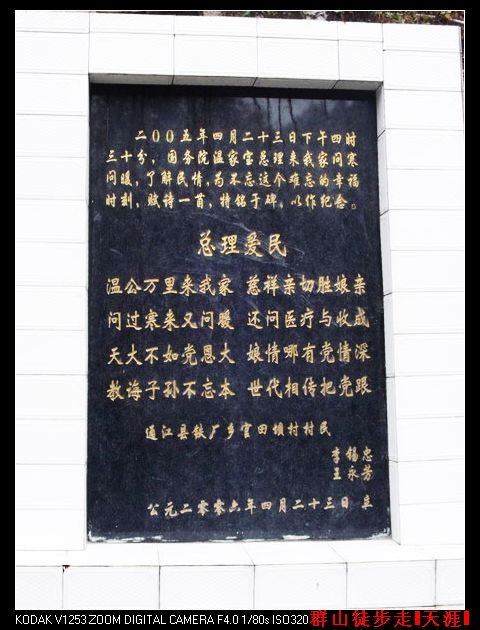 二00五年四月二十三日下午四时
三十分，国务院温家宝总理来我家问寒
问暖，了解民情，为不忘这个难忘的幸福
时刻，赋诗一首，特铭于碑，以作纪念。
总理爱民
温公万里来我家 慈祥亲切胜娘亲
问过寒来又问暖 还问医疗与收成
天大不如党恩大 娘情哪有党情深
教诲子孙不忘本 世代相传把党跟
通江县铁厂乡官田坝村村民
李锡忠
王永芳
公元二零零六年四月二十三日 立
KODAK V1253 ZOOM DIGITAL CAMERA F4.0 1/80s ISO320 群山徒步走 天涯